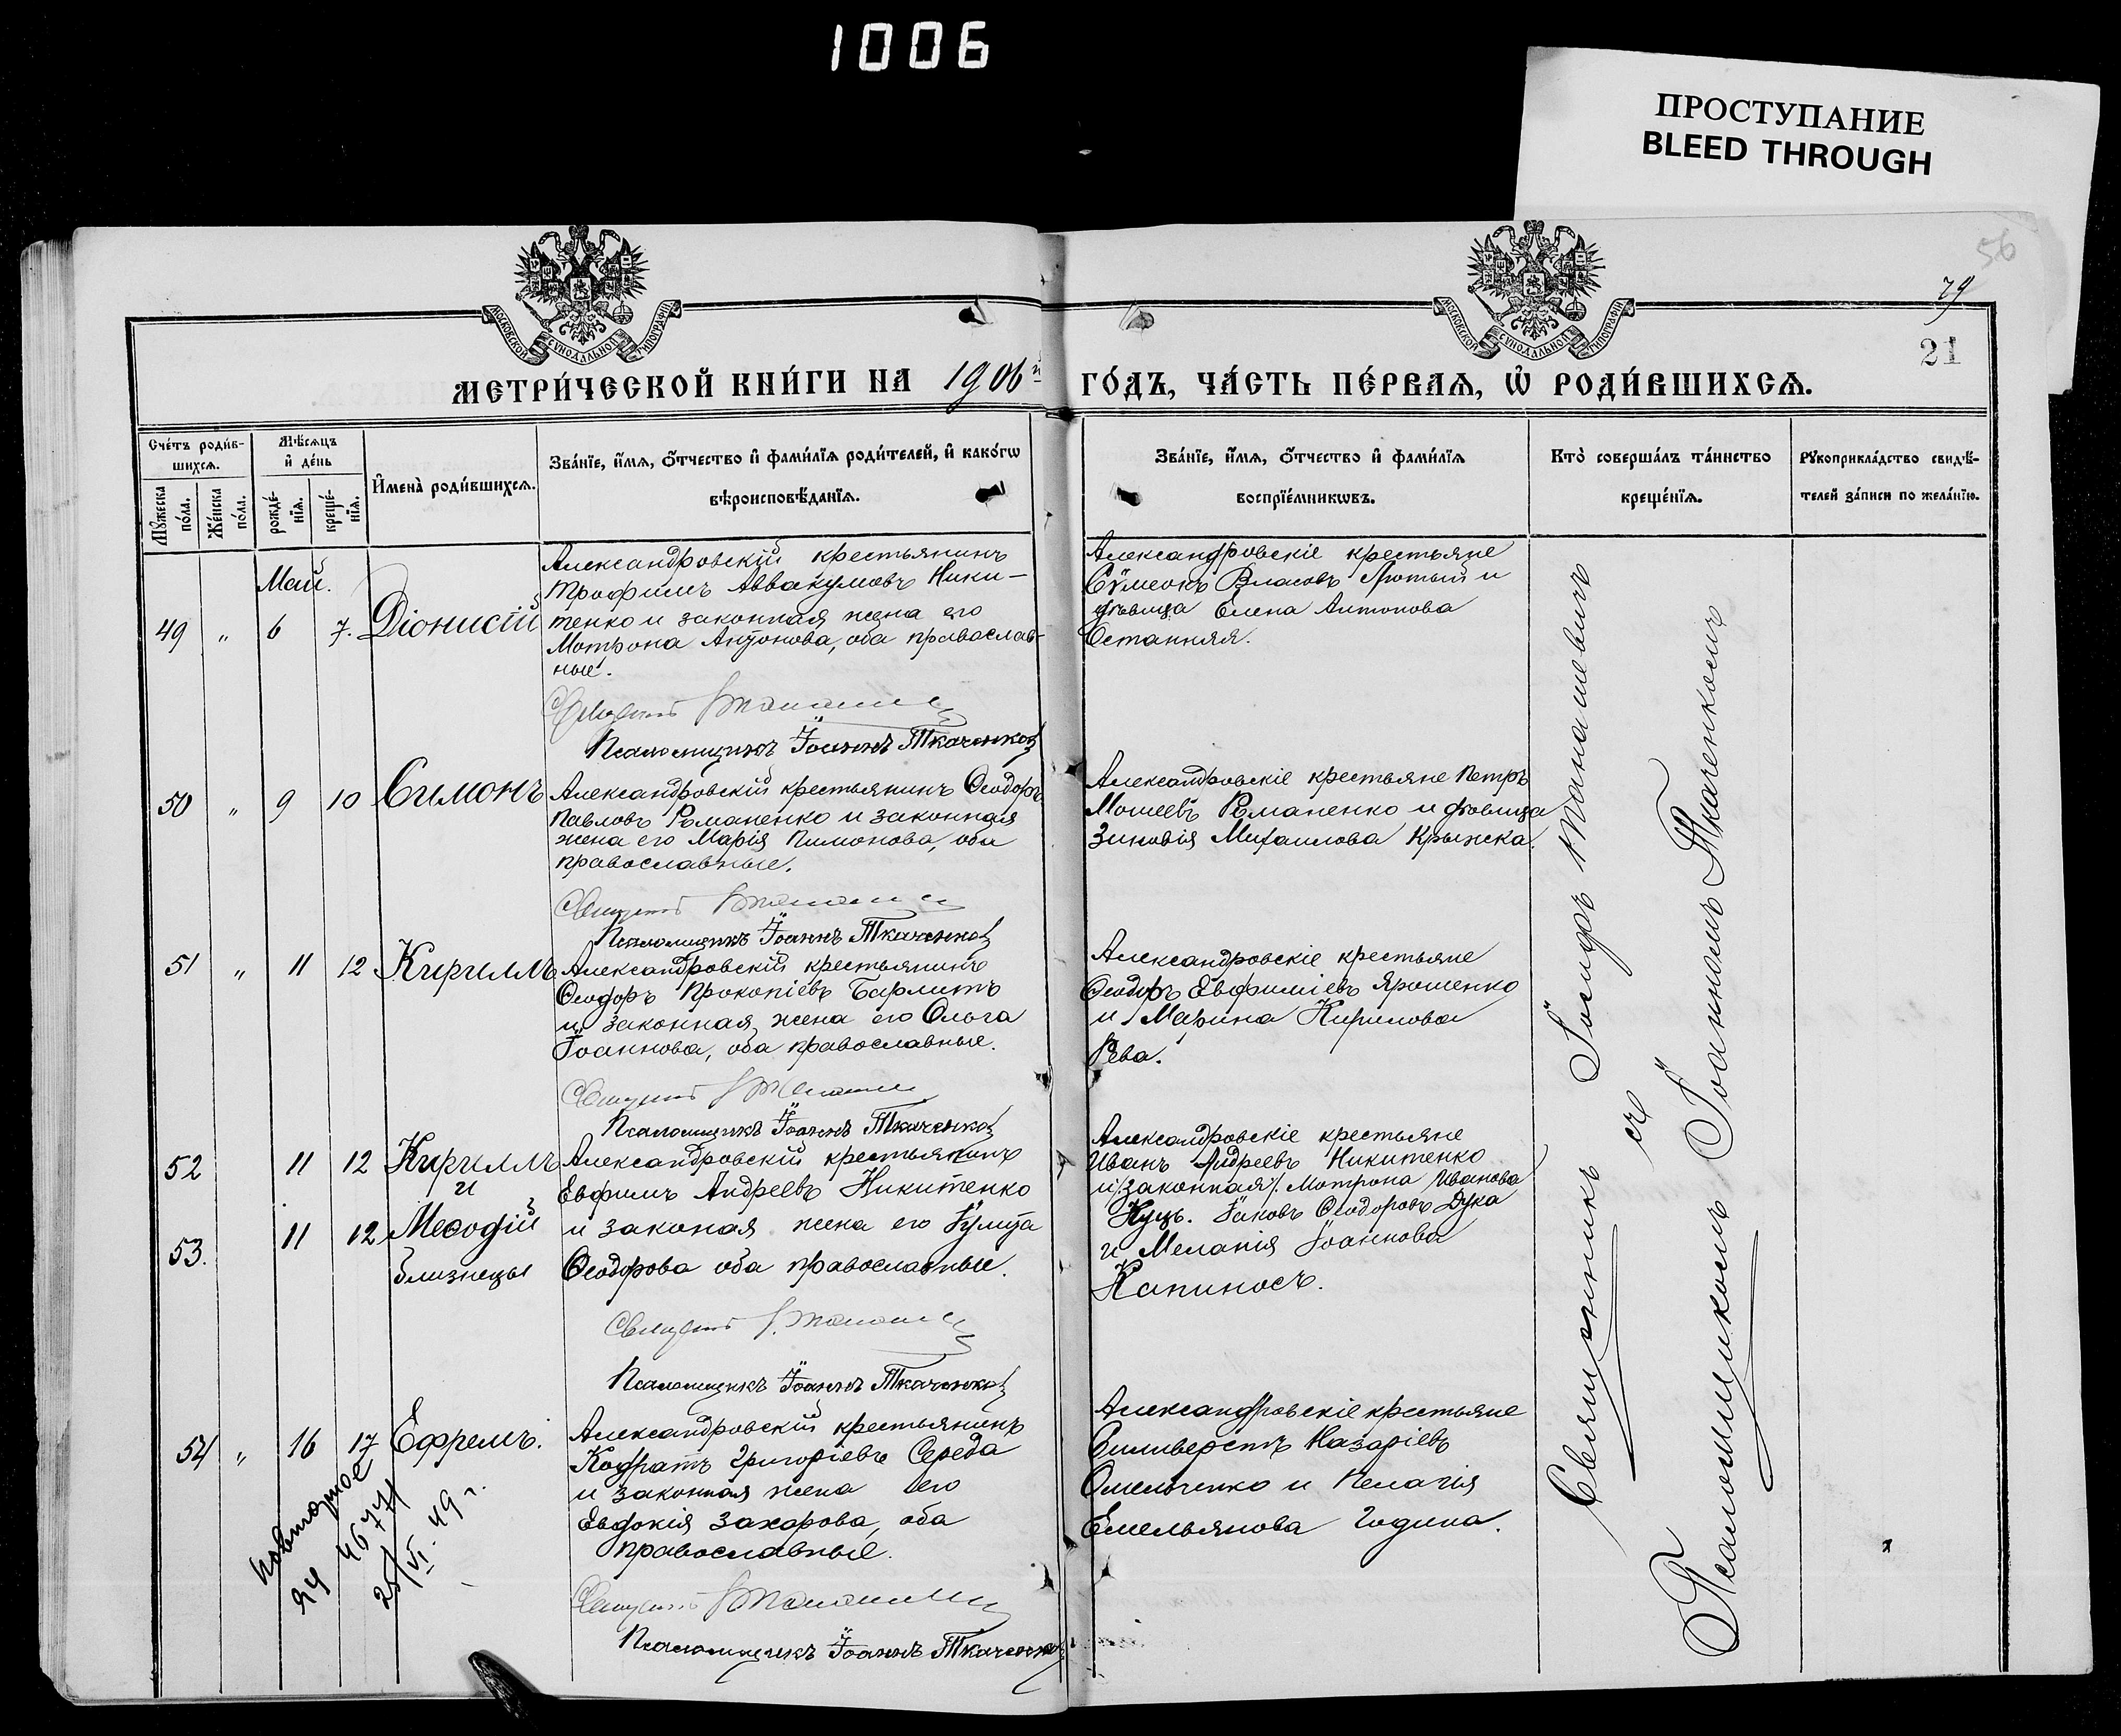 1006
ПРОСТУПАНИЕ
BLEED THROUGH
56
79
21
МОСКОВСКОЙ СѴНОДАЛЬНОЙ ТИПОГРАФІИ
МОСКОВСКОЙ СѴНОДАЛЬНОЙ ТИПОГРАФІИ
МЕТРИ́ЧЕСКОЙ КНИ́ГИ НА 1906й ГО́ДЪ, ЧА́СТЬ ПЕ́РВАѦ, Ѡ҆ РОДИ́ВШИХСѦ.
Сче́тъ роди́в-
шихсѧ.
Мꙋ́жеска по́ла.
Же́нска по́ла.
Мѣ́сѧцъ
и҆ де́нь
рожде́-
нїѧ.
креще́-
нїѧ.
И҆мена̀ роди́вшихсѧ.
Зва́нїе, и҆́мѧ, ѻ҆́тчество и҆ фами́лїѧ роди́телей, и҆ како́гѡ
вѣроисповѣ́данїѧ.
Зва́нїе, и҆́мѧ, ѻ҆́тчество и҆ фами́лїѧ
воспрїе́мникѡвъ.
Кто̀ соверша́лъ та́инство
креще́нїѧ.
Рꙋкоприкла́дство свидѣ́-
телей за́писи по жела́нїю.
Май.
49 " 6 7. Діонисій
Александровскій крестьянинъ
Трофимъ Аввакумовъ Ники-
тенко и законная жена его
Мотрона Антонова, оба православ-
ные.
Псаломщикъ Іоаннъ Ткаченко
Александровскіе крестьяне
Сѵмеонъ Власовъ Лютый и
дѣвица Елена Антонова
Останняя.
50 " 9 10 Симонъ
Александровскій крестьянинъ Ѳеодоръ
Павловъ Романенко и законная
жена его Марія Пимонова, оба
православные.
Псаломщикъ Іоаннъ Ткаченко
Александровскіе крестьяне Петръ
Мошеевъ Романенко и дѣвица
Зиновія Михаилова Крыжка.
51 " 11 12 Кириллъ
Александровскій крестьянинъ
Ѳеодоръ Прокопіевъ Бармитъ
и законная жена его Ольга
Іоаннова, оба православные.
Псаломщикъ Іоаннъ Ткаченко
Александровскіе крестьяне
Ѳеодоръ Евфиміевъ Ярошенко
и Марина Кирилова
Рева.
52 11 12 Кириллъ
и
53. 11 12 Меѳодій
близнецы
Александровскій крестьянинъ
Евфимъ Андреевъ Никитенко
и законая жена его Іулита
Ѳеодорова оба православные.
Псаломщикъ Іоаннъ Ткаченко
Александровскіе крестьяне
Иванъ Андреевъ Никитенко
и /законная/. Мотрона Иванова
Куць. Іаковъ Ѳеодоровъ Дука
и Меланія Іоаннова
Капиносъ.
54 " 16 17 Ефремъ.
Александровскій крестьянинъ
Кодратъ Григоріевъ Середа
и законная жена его
Евдокія Захарова, оба
православные.
Псаломщикъ Іоаннъ Ткаченко
Александровскіе крестьяне
Силиверстъ Назаріевъ
Омельченко и Пелагія
Емельянова Година.
Повторное
ЯЧ 4677
25/VI. 49 г.
Священникъ Іосифъ Манашевичъ
съ
Псаломщикомъ Іоанномъ Ткаченкомъ